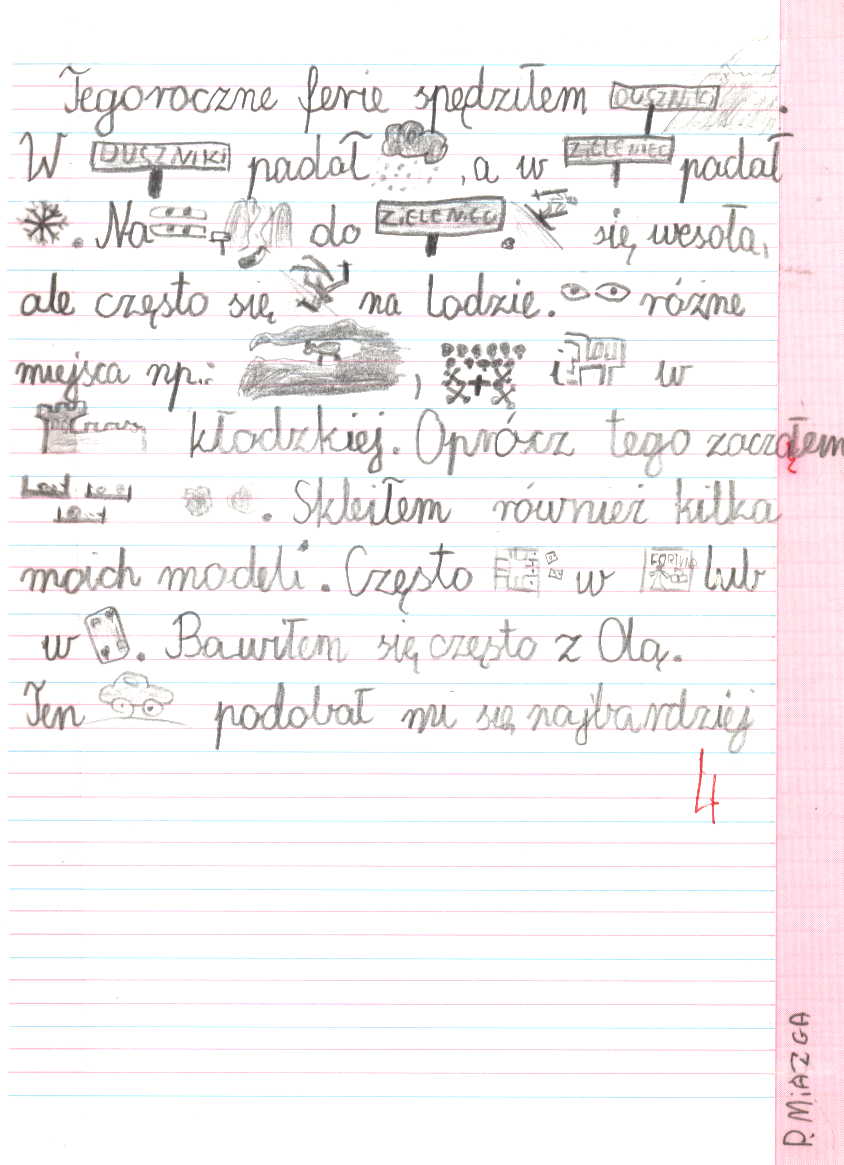 Tegoroczne ferie spędziłem DUSZNIKI.
W DUSZNIKI padał , a w ZIELENIEC padał
. Na do ZIELENIEC. się wesoła,
ale często się na lodzie. różne
miejsca np.: , i w
kłodzkiej. Oprócz tego zacząłem
. Skleiłem również kilka
moich modeli. Często w FORTUNA lub
w . Bawiłem się często z Olą.
Ten podobał mi się najbardziej
4
P. MiAZGA